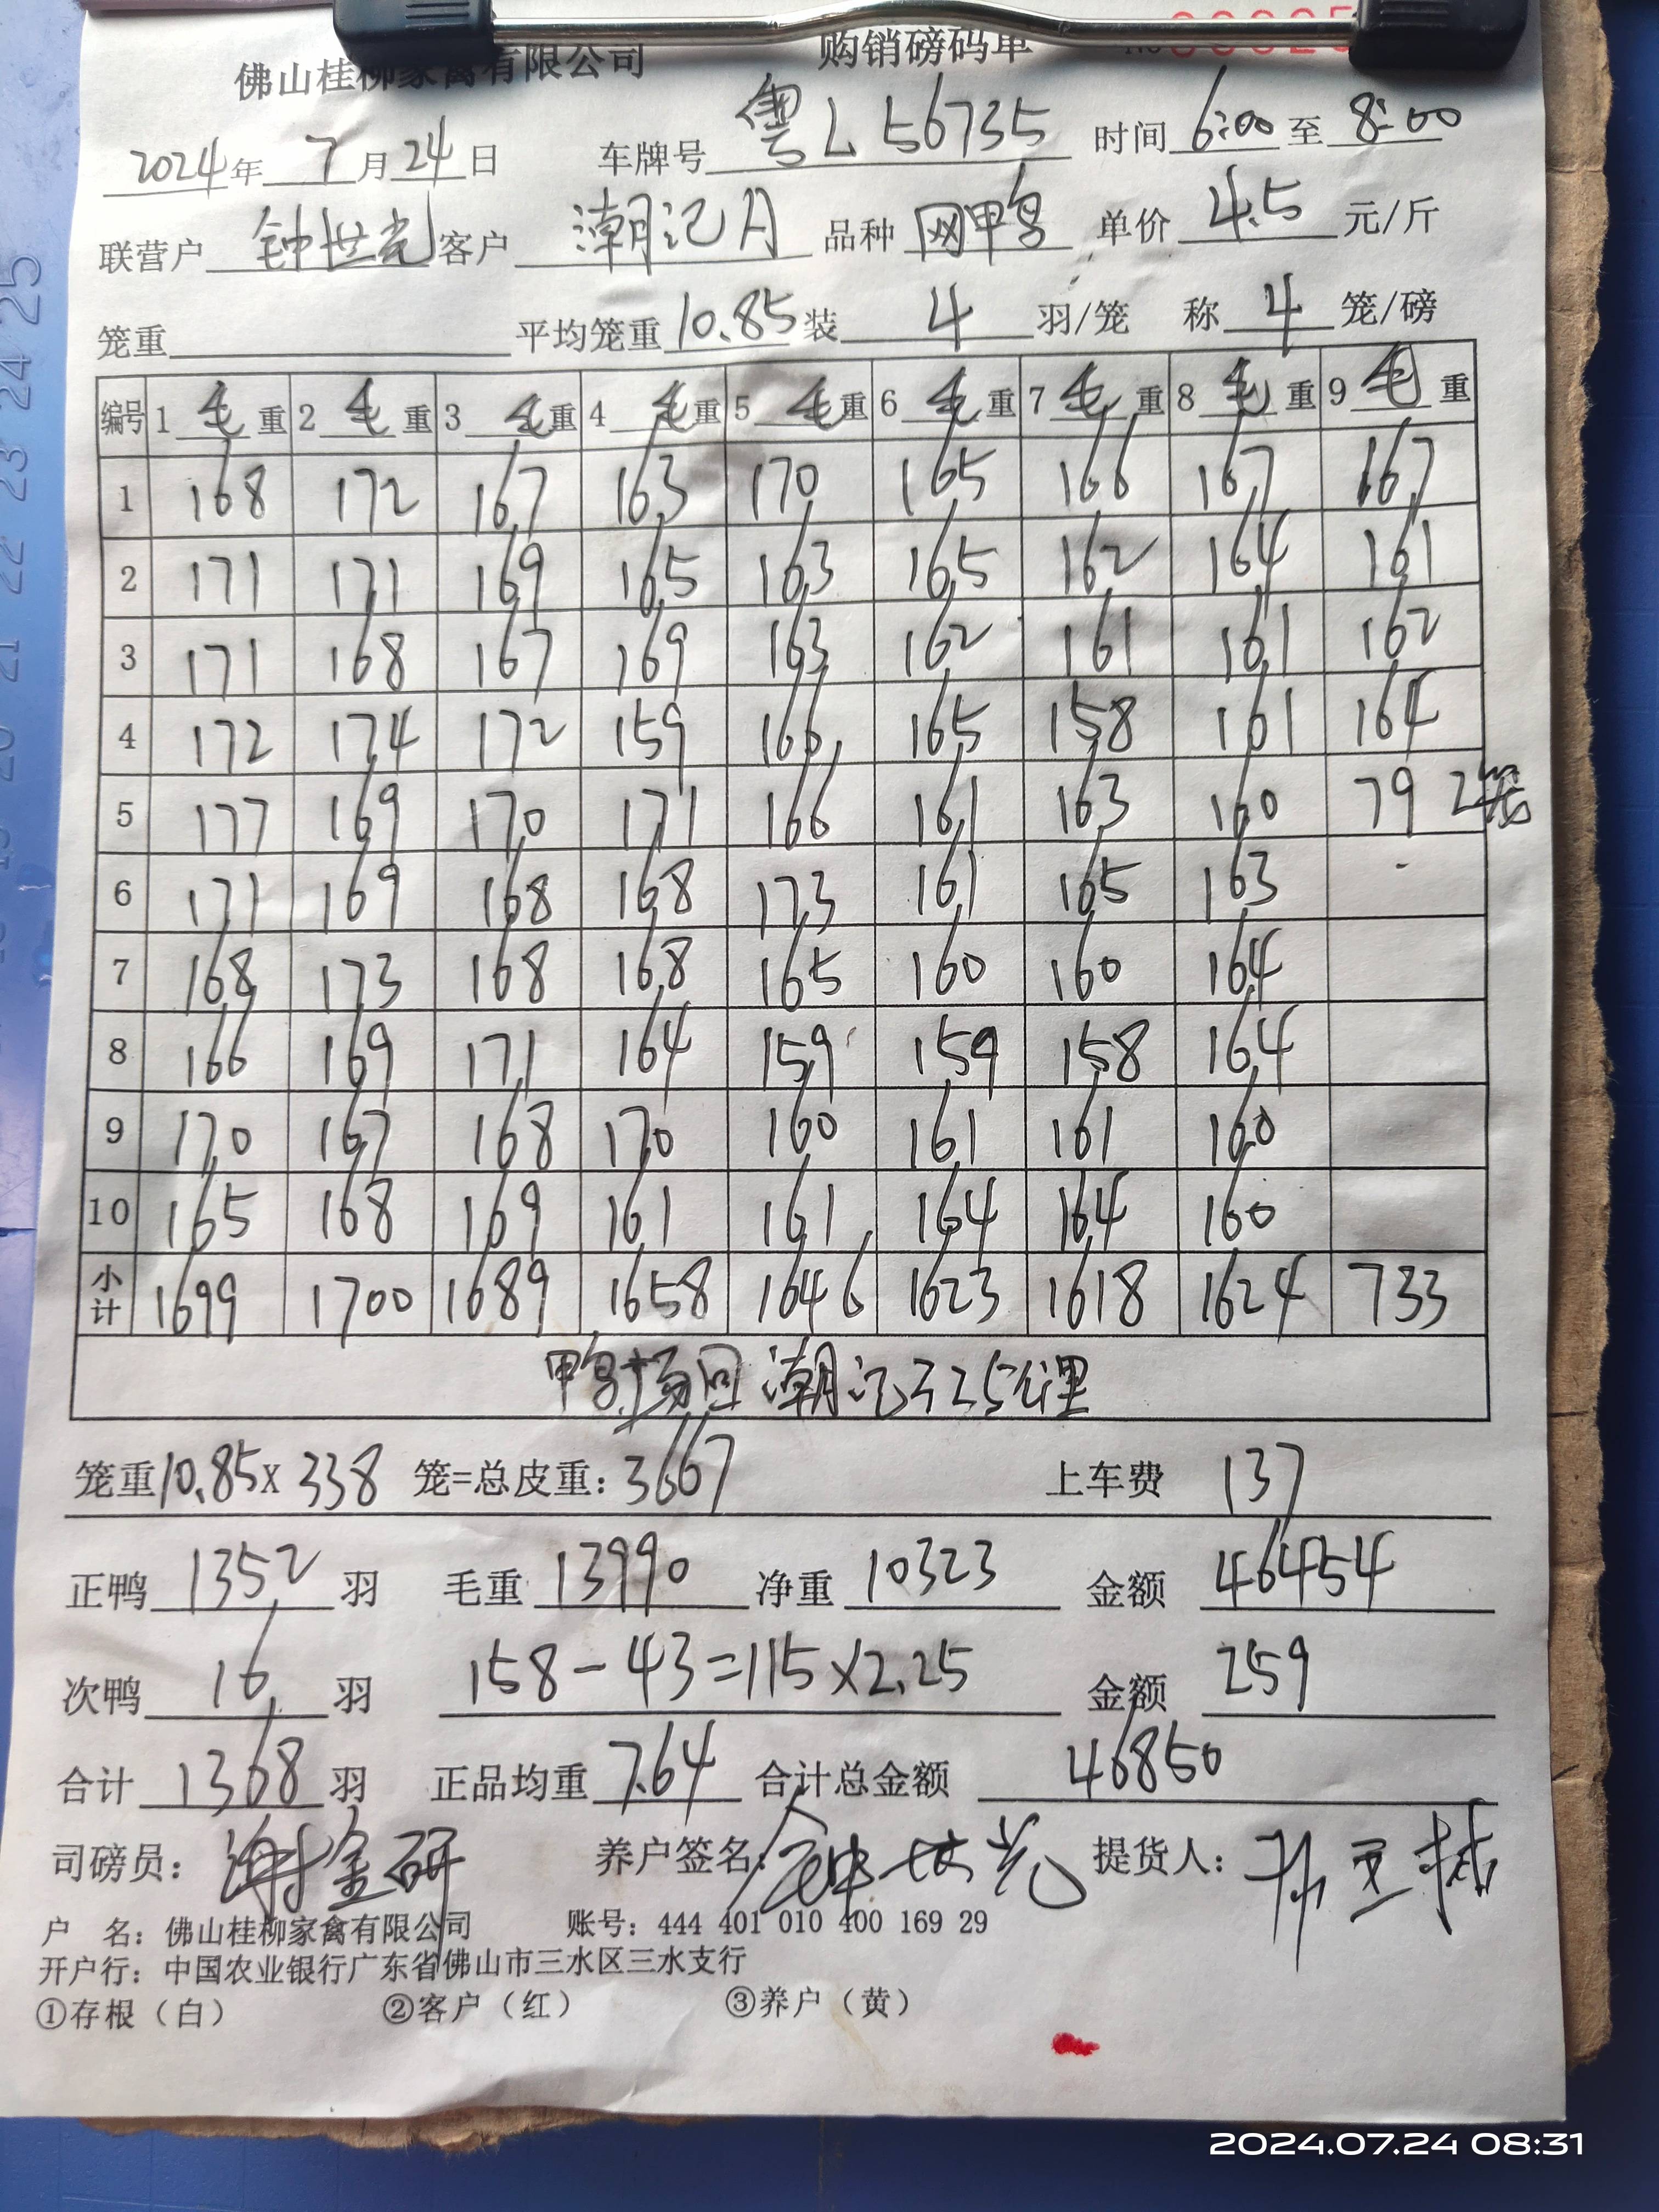 佛山桂柳家禽有限公司 购销磅码单
2024年 7月24日 车牌号 粤L56735 时间 6:00 至 8:00
联营户 钟世光 客户 潮记A 品种 网鸭 单价 4.5 元/斤
笼重 平均笼重 10.85 装 4 羽/笼 称 4 笼/磅
编号 1 毛 重 2 毛 重 3 毛 重 4 毛 重 5 毛 重 6 毛 重 7 毛 重 8 毛 重 9 毛 重
1 168 172 167 163 170 165 166 167 167
2 171 171 169 165 163 165 162 164 161
3 171 168 167 169 163 162 161 161 162
4 172 174 172 159 166 165 158 161 164
5 177 169 170 171 166 161 163 160 79 2笼
6 171 169 168 168 173 161 165 163
7 168 173 168 168 165 160 160 164
8 166 169 171 164 159 159 158 164
9 170 167 168 170 160 161 161 160
10 165 168 169 161 161 164 164 160
小计 1699 1700 1689 1658 1646 1623 1618 1624 733
鸭场回潮记225公里
笼重10.85X 338 笼=总皮重: 3667 上车费 137
正鸭 1352 羽 毛重 13990 净重 10323 金额 46454
次鸭 16 羽 158-43=115×2.25 金额 259
合计 1368 羽 正品均重 7.64 合计总金额 46850
司磅员: 谢金研 养户签名: 钟世光 提货人:
户 名: 佛山桂柳家禽有限公司 账号: 444 401 010 400 169 29
开户行: 中国农业银行广东省佛山市三水区三水支行
①存根（白） ②客户（红） ③养户（黄）
2024.07.24 08:31